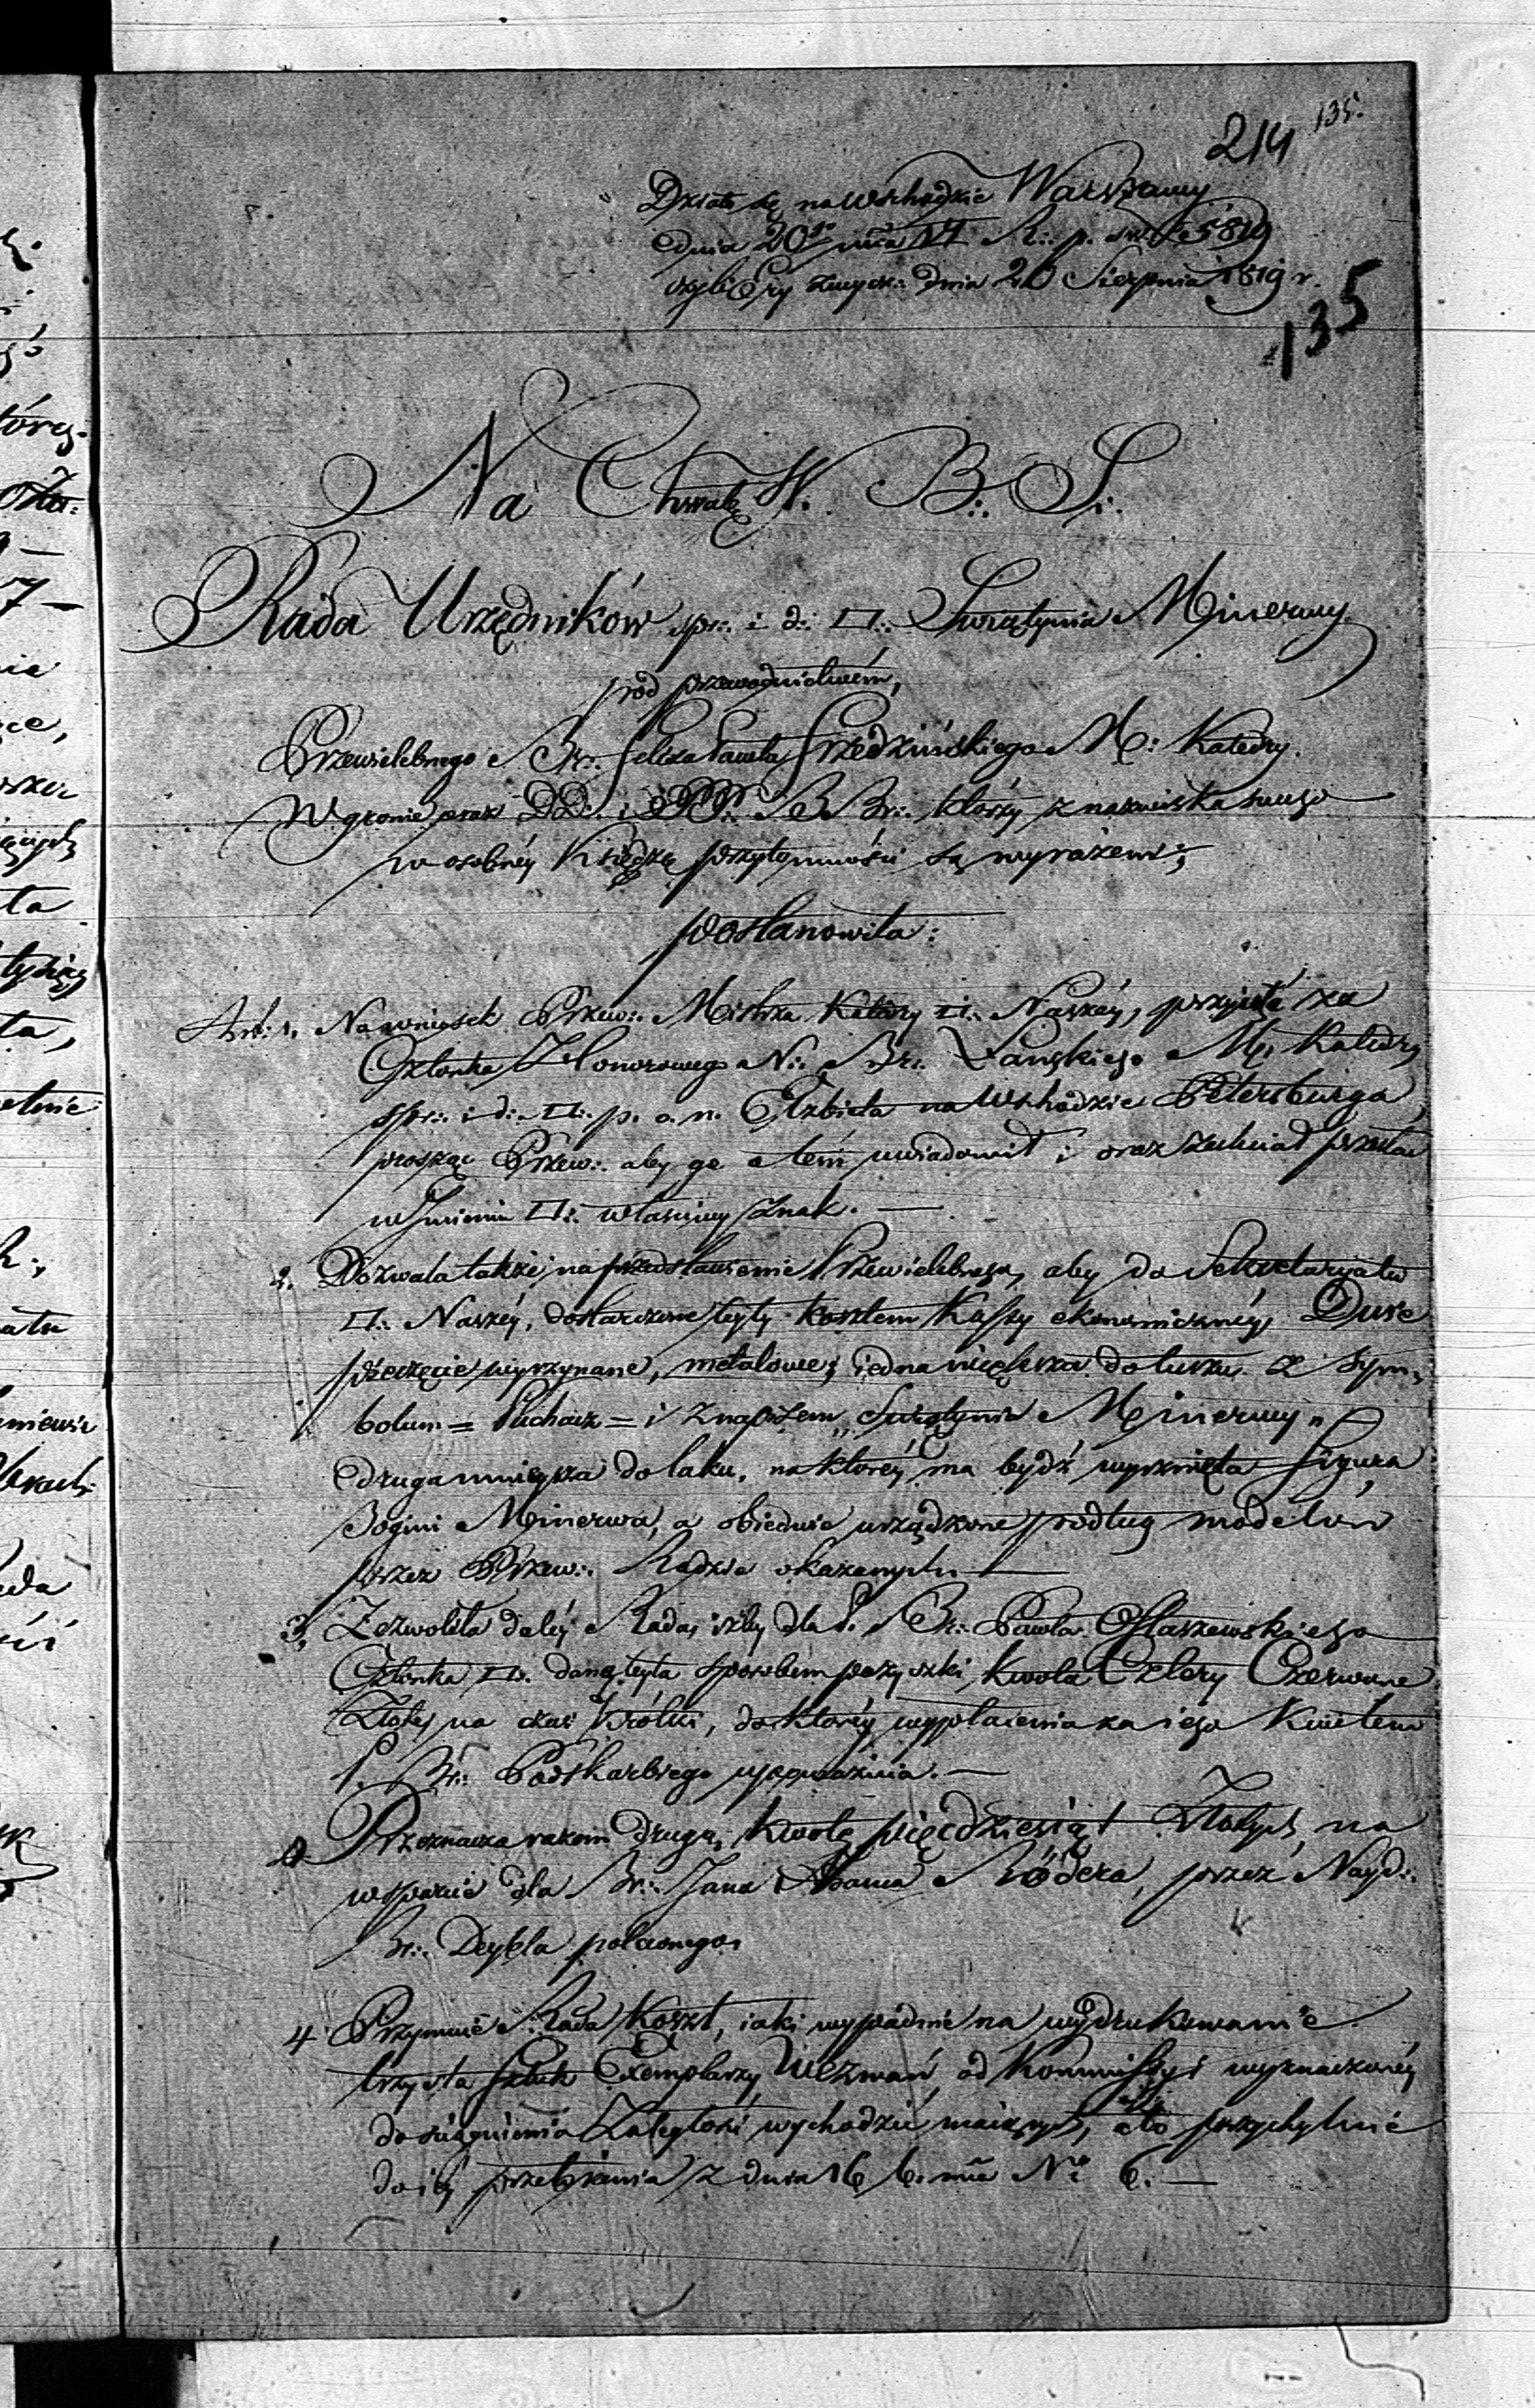 214 135.
Działo się na Wschodzie Warszawy
dnia 20go mca VI R:. p. św. 5819
czyli Ery zwycz:. dnia 20 Sierpnia 1819 r.
135
Na Chwałę W. B:. S:.
Rada Urzędników spr:. i d:. □:. Swiątynia Minerwy
pod przewodnictwém,
Przewielebnego Br:. Felixa Pawła Gredzińskiego M: Katedry.
W gronie oraz DD. i PP. BBr:. którzy z nazwiska swego
w osobnéy Księdze przytomności są wyrażeni;
postanowiła:
Art: 1. Na wniosek Przew:. Mistrza Katedry □:. Naszéy, przyięła za
Członka Honorowego N:. Br:. Łanskiego M. Katedry
spr:. i d:. □:. p. o. n. Elżbieta na Wschodzie Petersburga,
prosząc Przew:. aby go o tém uwiadomił i oraz zechciał przesłać
w Imieniu □:. właściwy Znak. —
2. Dozwala także na przedstawienie Przewielebnego, aby do Sekretaryatu
□:. Naszéy, dostarczone były kosztem Kassy ekonomicznéy Dwie
pieczęcie wyrzynane, metalowe; iedna większa do tuszu z Sym-
bolum = Puchacz = i z napisem „Swiątynia Minerwy"
druga mnieysza do laku, na któréy ma bydź wyrznięta figura
Bogini Minerwa, a obiedwie urządzone podług modelów
przez Przew:. Radzie okazanych —
3. Zezwoliła daléy Rada, iżby dla P. Br:. Pawła Ostaszewskiego
Członka □:. daną była sposobem pożyczki, kwota Cztery Czerwone
Złote na czas krótki, do któréy wypłacenia za iego Kwitem
P. Br:. Podskarbiego upoważnia. —
Przeznacza razem drugą, kwotę pięćdziesiąt Złotych, na
wsparcie dla Br:. Jana Adama Rödera, przez Nayd:.
Br:. Deybla poleconego.
4 Przyymuie Rada koszt, iaki wypadnie na wydrukowanie
trzysta sztuk Exemplarzy Wezwań, od Kommissyi wyznaczonéy
do ściągnienia Zaległości wychodzić maiących, a to przychylnie
do iéy przełożenia z dnia 16 b. m. No 6. —